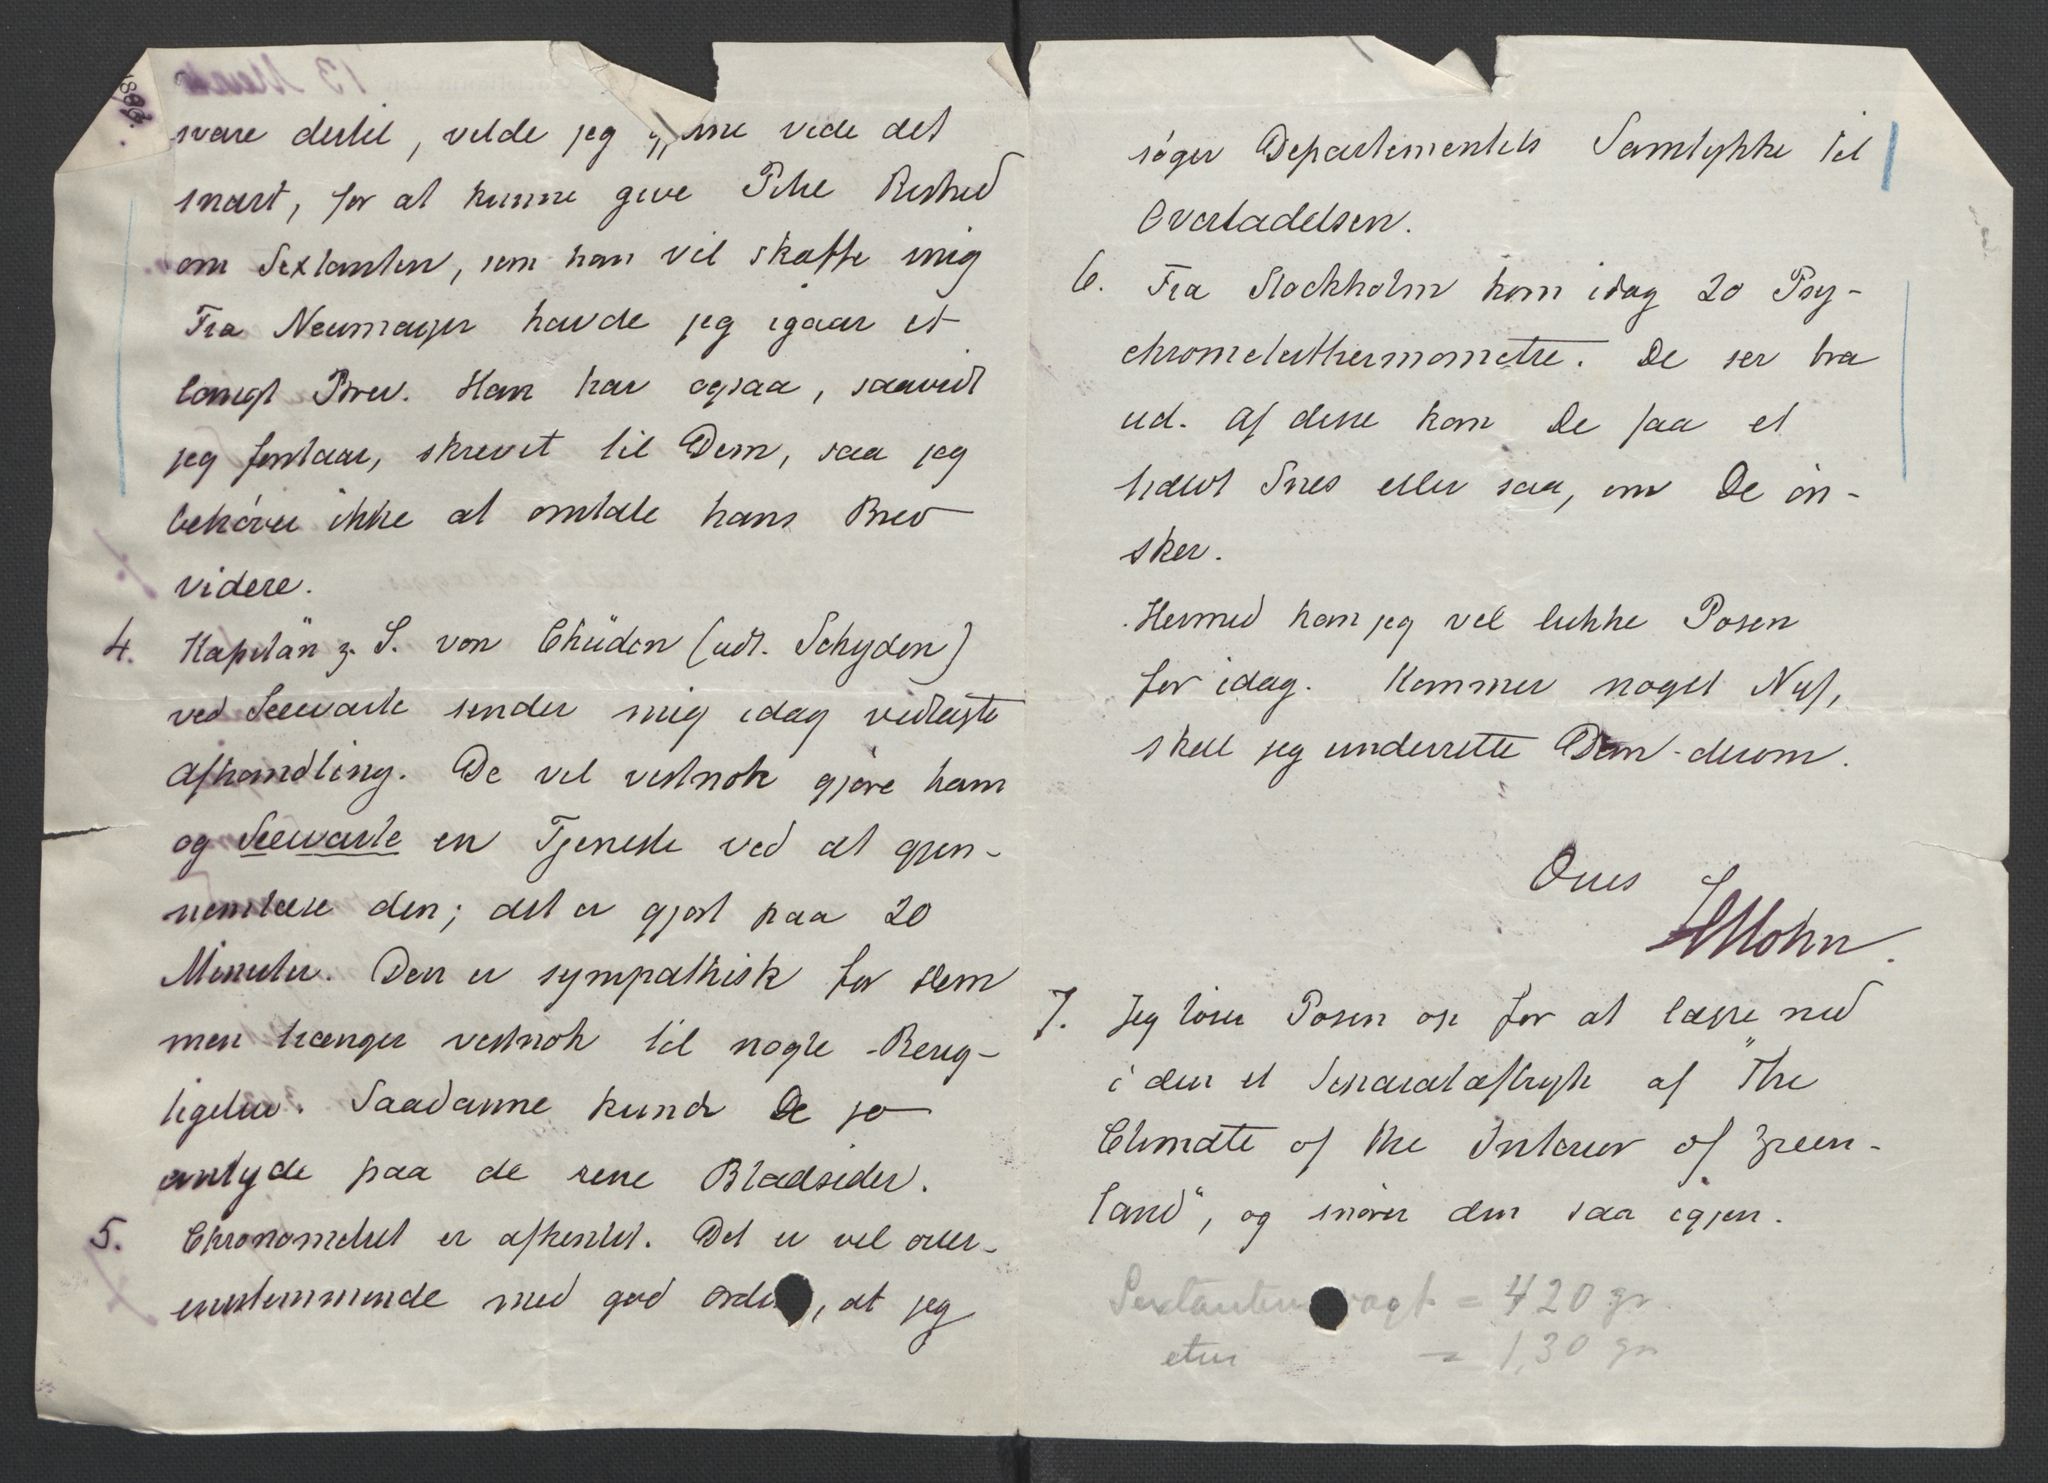 svare dertil, vilde jeg gjerne vide det
snart, for at kunne give Pihl Besked
om Sextanten, som han vil skaffe mig
Fra Neumayer havde jeg igaar et
langt Brev. Han har ogsaa, saavidt
jeg forstaar, skrevet til Dem, saa jeg
behøver ikke at omtale hans Brev
videre.
4. Kapitän z. S. von Chüden (udt. Schyden)
ved Seewarte sender mig idag vedlagte
Afhandling. De vil vistnok gjøre ham
og Seewarte en Tjeneste ved at gjen-
nemlæse den; det er gjort paa 20
Minuter. Den er sympathisk for Dem
men trænger vistnok til nogle Berig-
tigelser. Saadanne kunde De jo
antyde paa de rene Bladsider.
5. Chronometret er afhentet. Det er vel over-
ensstemmende med god Orden, at jeg
søger Departementets Samtykke til
Overladelsen.
6. Fra Stockholm kom idag 20 Psy-
chrometerthermometre. De ser bra
ud. Af disse kan De faa et
halvt Snes eller saa, om De øn-
sker.
Hermed kan jeg vel lukke Posen
for idag. Kommer noget Nyt,
skal jeg underrette Dem derom.
Deres
HMohn.
7. Jeg løser Posen op for at lægge ned
i den et Separataftryk af "The
Climate of the Interior of Green-
land", og snører den saa igjen.
Sextanten vægt = 420 gr.
etui = 130 gr
1882.
13 Marts